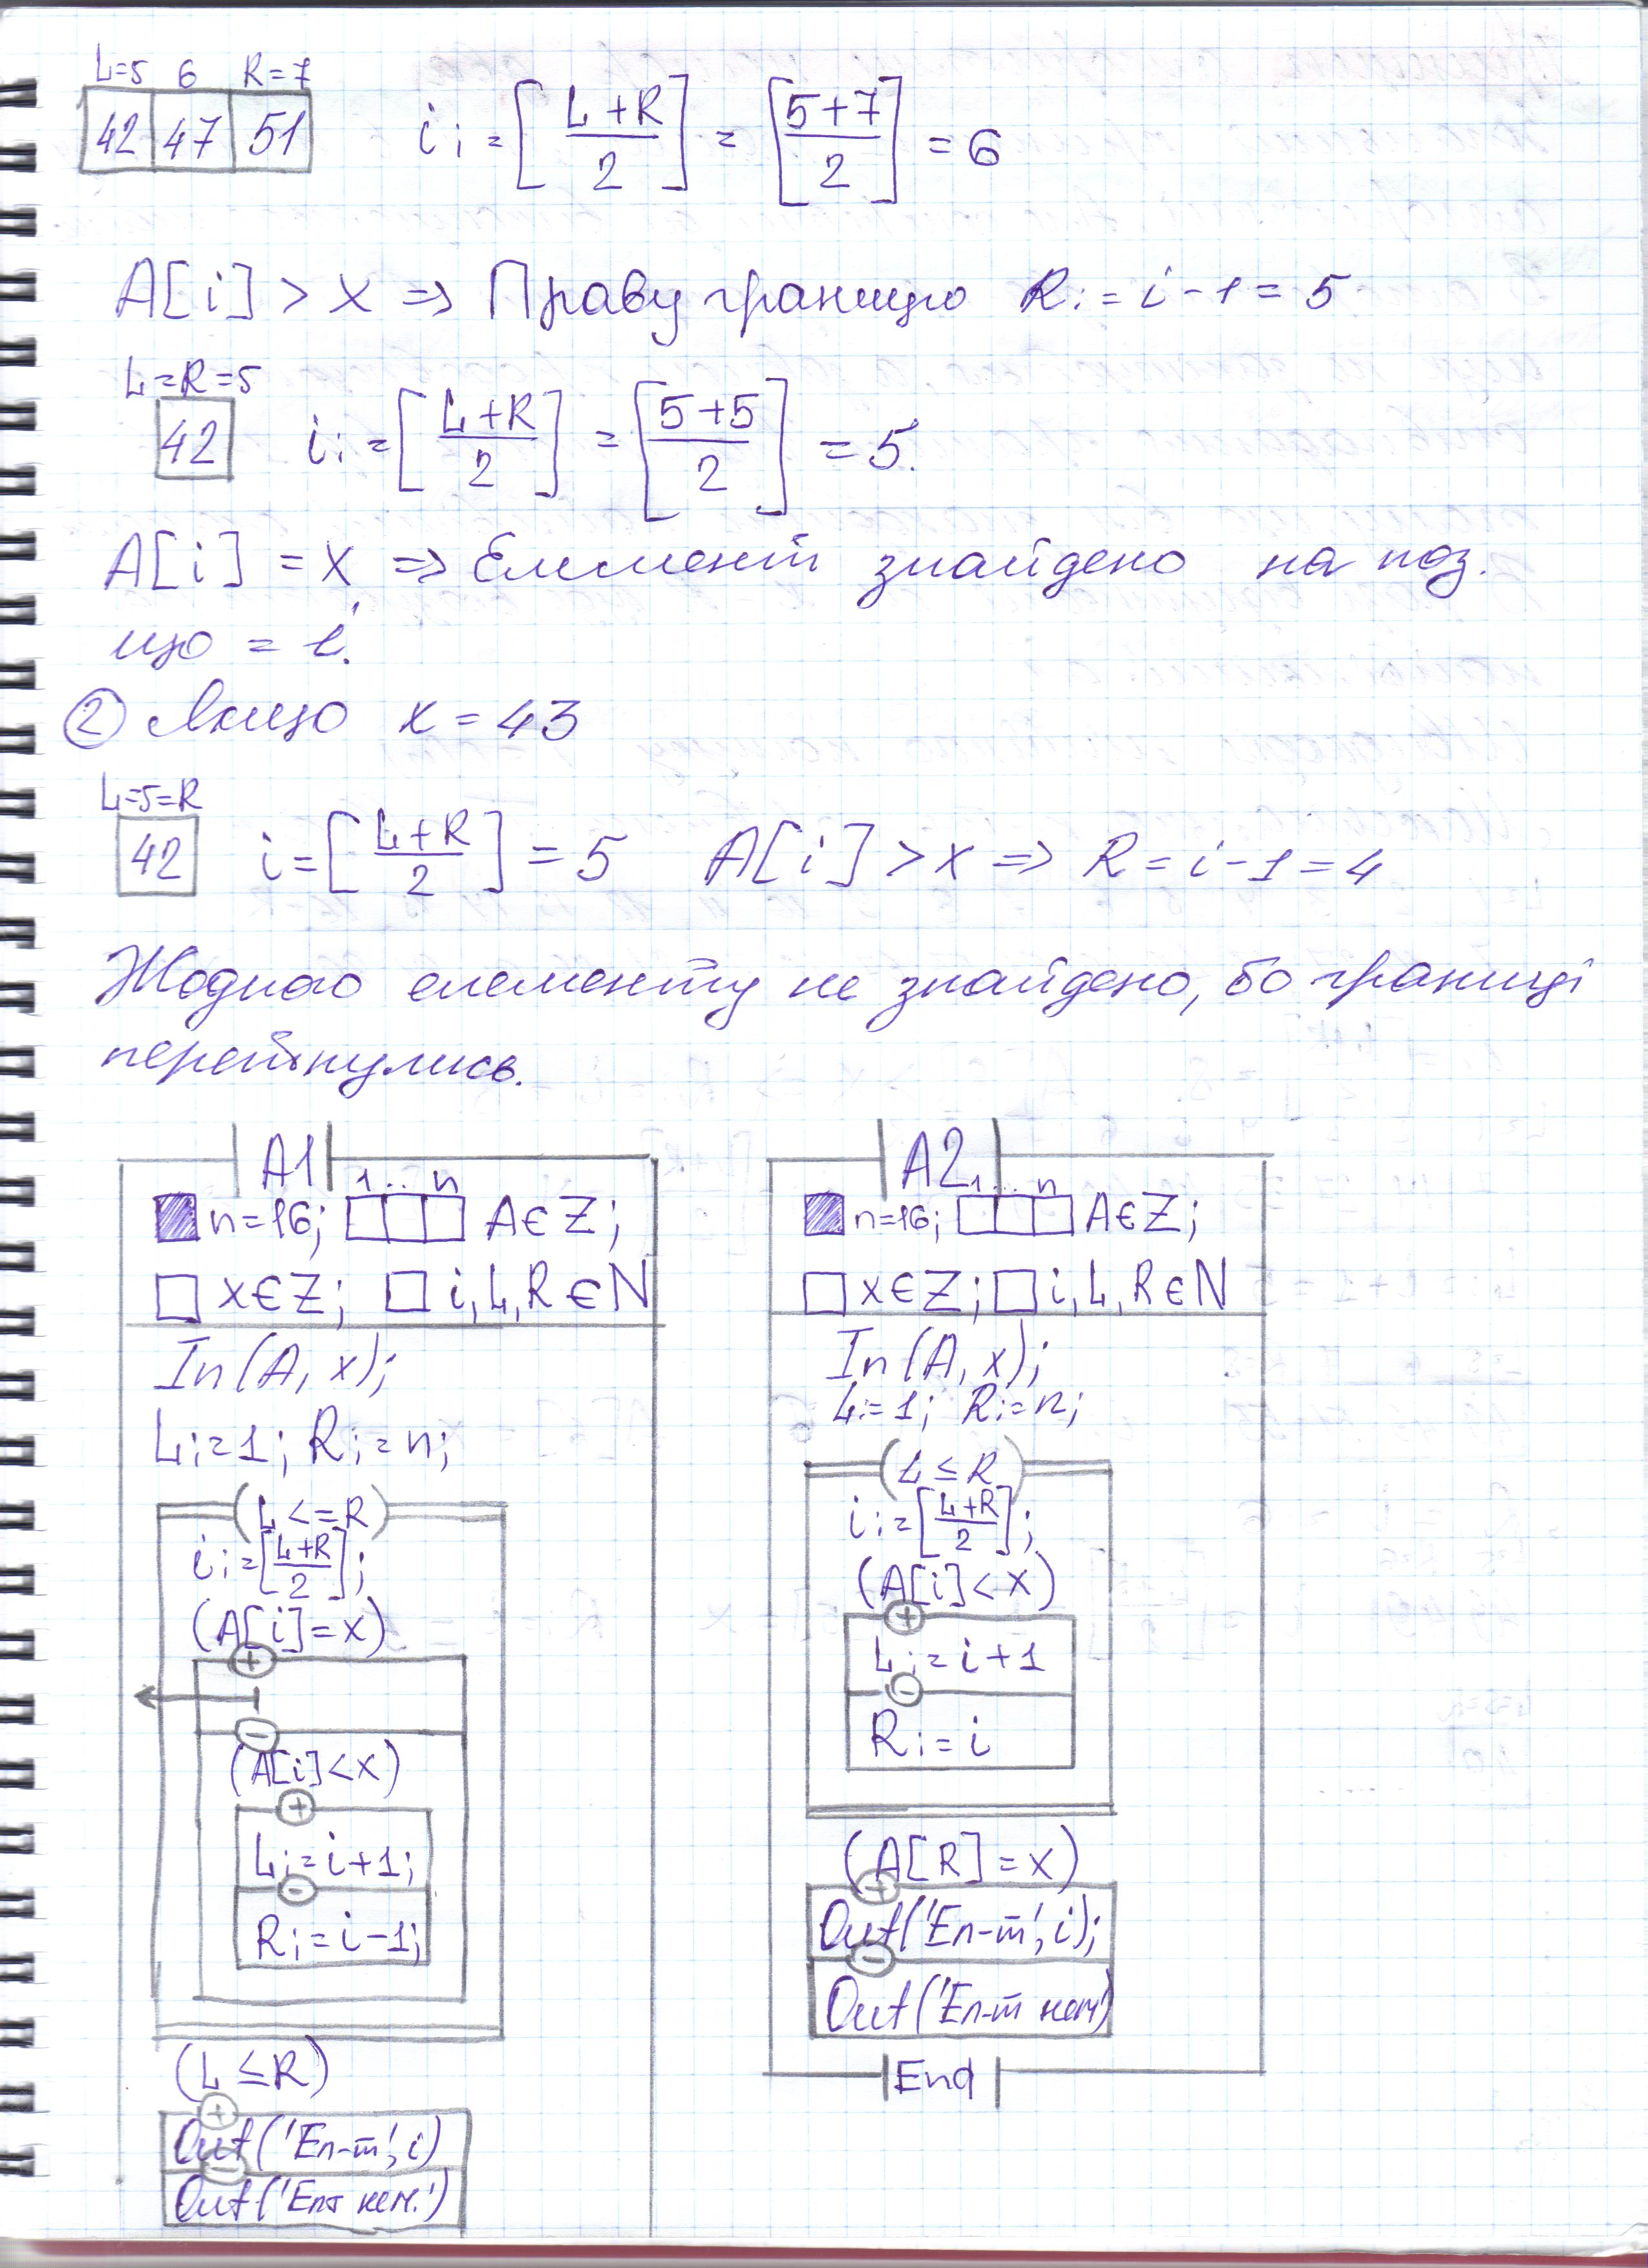 L=5 6 R=7
42 47 51 i:=[(L+R)/2] = [(5+7)/2] = 6
A[i] > x => Праву границю R:=i-1=5
L=R=5
42 i:=[(L+R)/2] = [(5+5)/2] = 5.
A[i] = x => Елемент знайдено на поз.
що = i.
② Якщо x = 43
L=5=R
42 i=[(L+R)/2] = 5 A[i] > x => R=i-1=4
Жодного елементу не знайдено, бо границі
перетнулись.
A1
1... n
n=16; A∈Z;
x∈Z; i,L,R∈N
In(A, x);
L:=1; R:=n;
(L<=R)
i:=[(L+R)/2];
(A[i]=x)
+
-
(A[i]<x)
+
L:=i+1;
-
R:=i-1;
(L≤R)
+
Out('Ел-т', i)
-
Out('Елт нем.')
A2
1... n
n=16; A∈Z;
x∈Z; i,L,R∈N
In(A, x);
L:=1; R:=n;
(L≤R)
i:=[(L+R)/2];
(A[i]<x)
+
L:=i+1
-
R:=i
(A[R]=x)
+
Out('Ел-т', i);
-
Out('Ел-т нем')
End